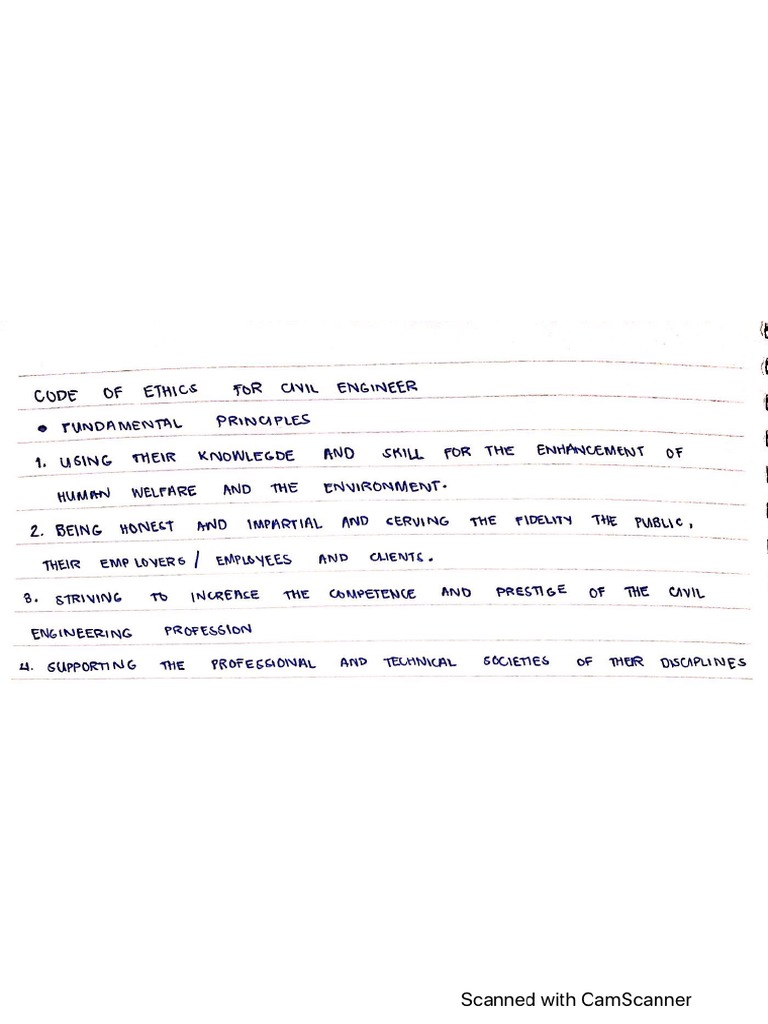 CODE OF ETHICS FOR CIVIL ENGINEER
• FUNDAMENTAL PRINCIPLES
1. USING THEIR KNOWLEGDE AND SKILL FOR THE ENHANCEMENT OF
HUMAN WELFARE AND THE ENVIRONMENT.
2. BEING HONEST AND IMPARTIAL AND SERVING THE FIDELITY THE PUBLIC,
THEIR EMPLOYERS / EMPLOYEES AND CLIENTS.
3. STRIVING TO INCREASE THE COMPETENCE AND PRESTIGE OF THE CIVIL
ENGINEERING PROFESSION
4. SUPPORTING THE PROFESSIONAL AND TECHNICAL SOCIETIES OF THEIR DISCIPLINES
Scanned with CamScanner